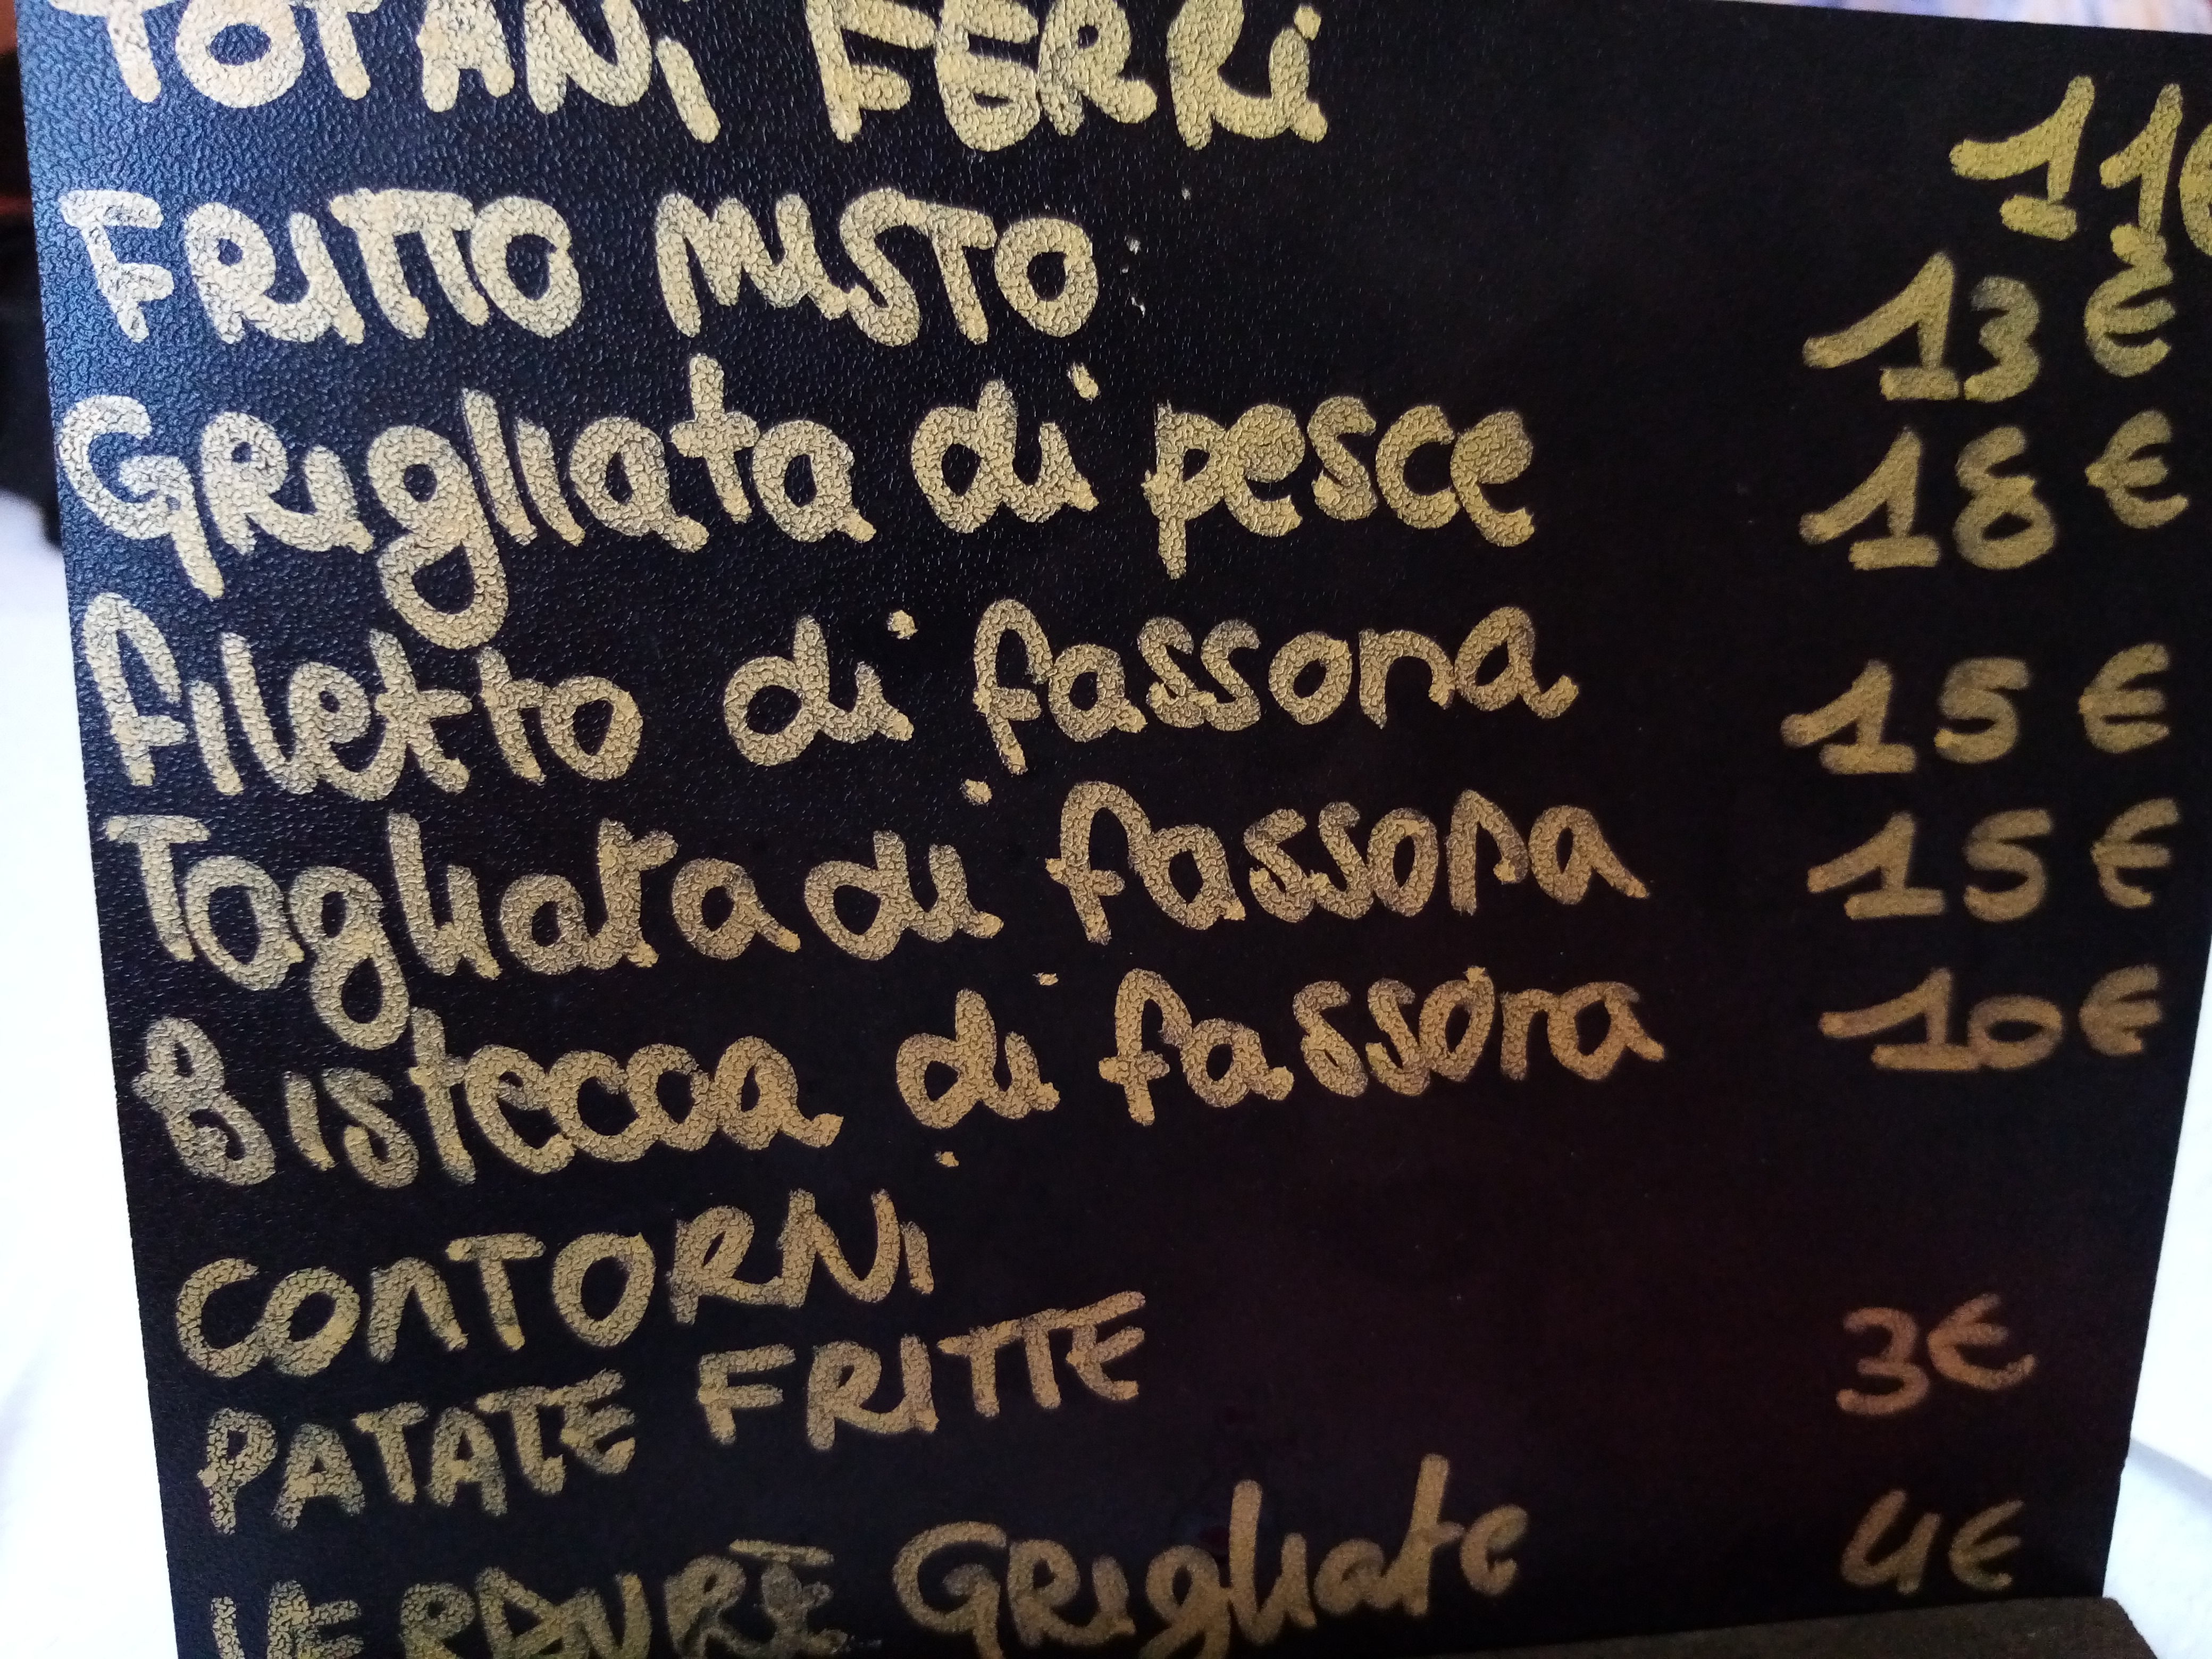 TOTANI FERRI 11€
FRITTO MISTO 13€
GRIGLIATA di pesce 18€
filetto di fassona 15€
Tagliata di fassona 15€
Bistecca di fassona 10€
CONTORNI
PATATE FRITTE 3€
VERDURE GRIGLIATE 4€